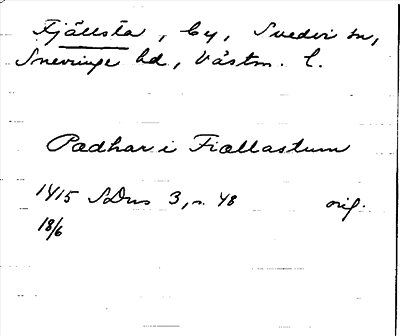 Fjällsta, by, Svedvi sn,
Snevringe hd, Västm. l.
Pædhar i Fiællastum
1415 SDns 3, n. 48 orig.
18/6